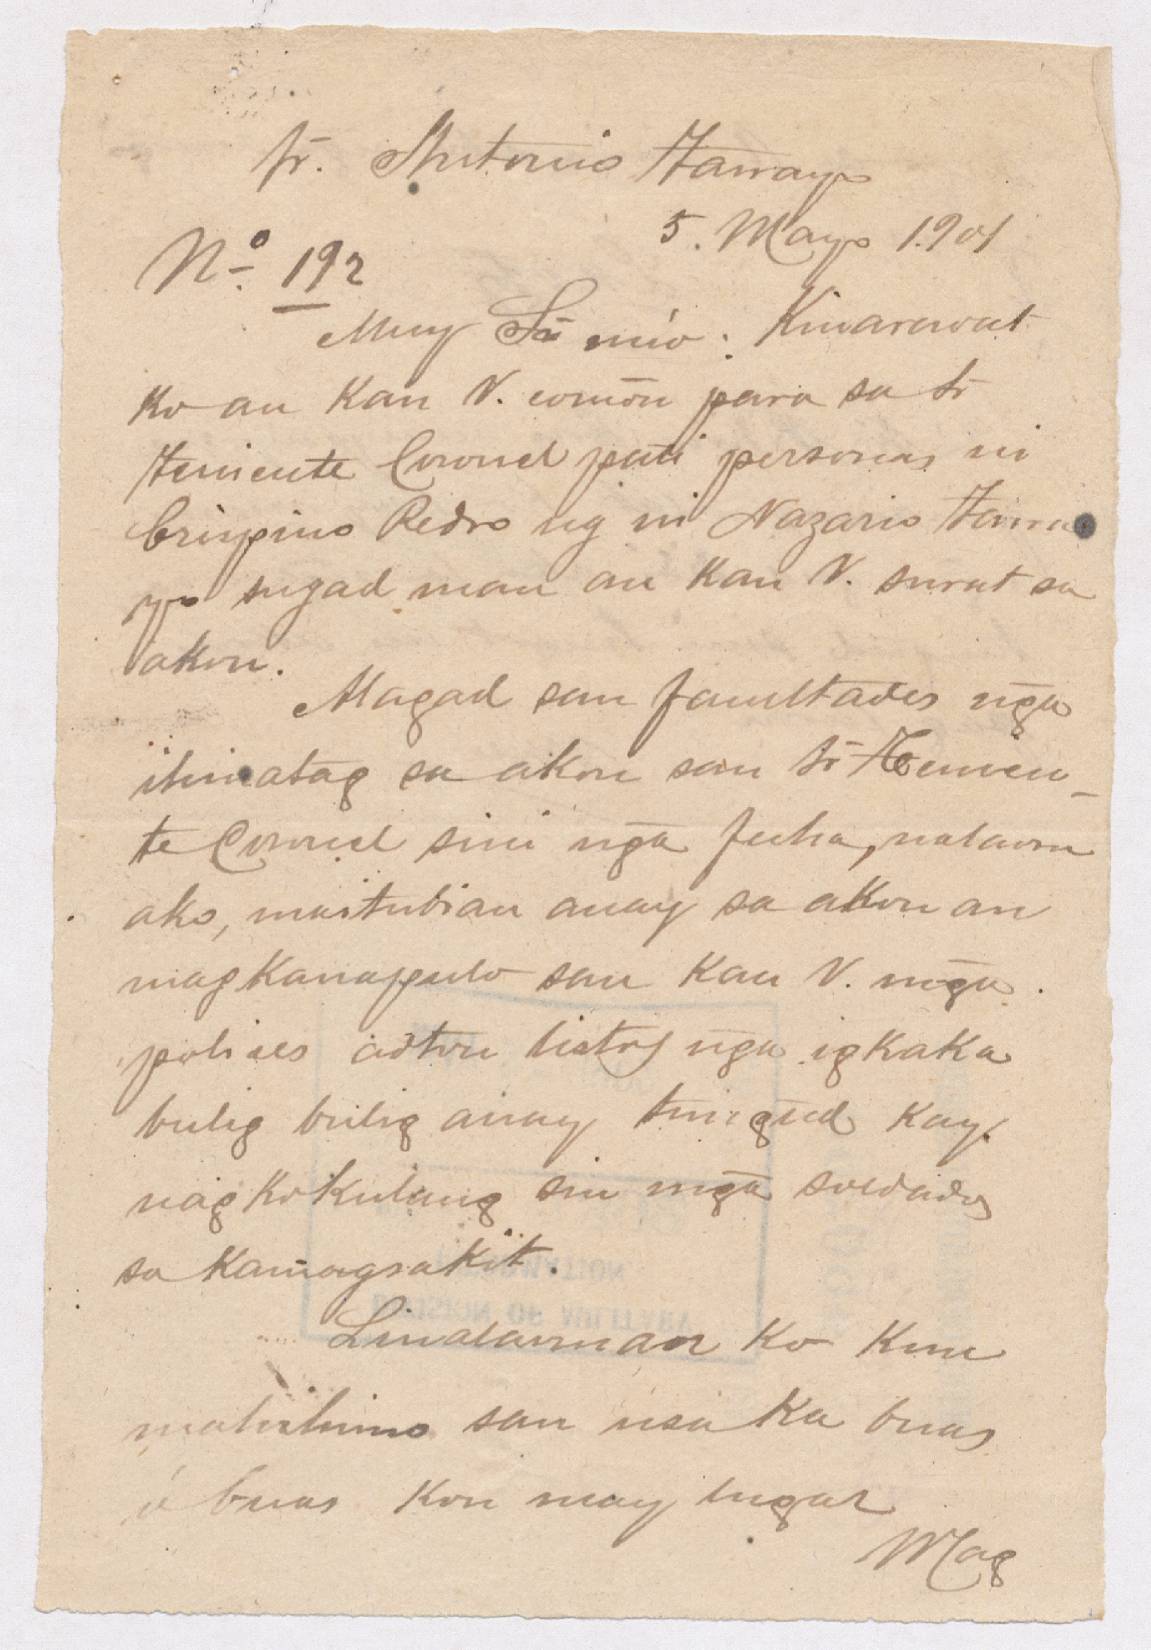 Sr. Antonio Tamayo
5. Mayo 1.901
Nº 192
Muy Sr mío: Kinarawat
ko an kan V. comon para sa Sr
Teniente Coronel pati personas ni
Crispino Pedro ug ni Nazario Tama
yo sugad man an kan V. surat sa
akon.
Magad san facultades nga
ihinatag sa akon san Sr Tenien_
te Coronel sini nga fecha, nalaom
ako, maitubian anay sa akon an
magkanapulo san kan V. mga
polices adton listos nga igkaka
bulig bulig anay tungud kay
nagkokulang sin mga soldados
sa kamagsakit.
Linalauman ko kun
mahihimo san usa ka buas
ó buas kon may lugar
Mag